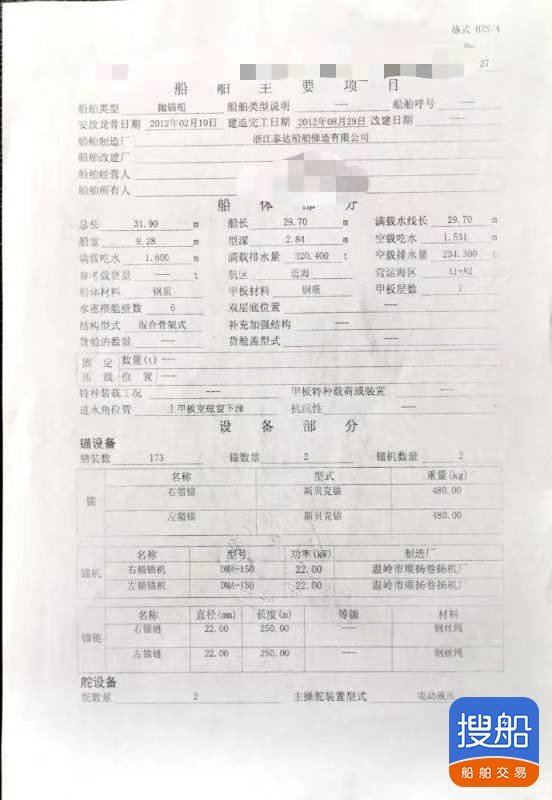 格式 HZS/4
27
船舶主要项目
船舶类型 抛锚船 船舶类型说明 --- 船舶呼号 ---
安放龙骨日期 2012年02月10日 建造完工日期 2012年08月29日 改建日期 ---
船舶制造厂 浙江泰达船舶修造有限公司
船舶改建厂
船舶经营人
船舶所有人
船体部分
总长 31.90 m 船长 29.70 m 满载水线长 29.70 m
船宽 9.28 m 型深 2.84 m 空载吃水 1.531 m
满载吃水 1.600 m 满载排水量 320.400 t 空载排水量 234.300 t
参考载货量 --- t 航区 近海 营运海区 A1+A2
船体材料 钢质 甲板材料 钢质 甲板层数 1
水密横舱壁数 6 双层底位置 ---
结构型式 混合骨架式 补充加强结构 ---
货舱的数量 --- 货舱盖型式 ---
固定 数量(t) ---
压载 位置 ---
特种装载工况 --- 甲板特种载荷或装置 ---
进水角位置 主甲板室舷窗下缘 抗沉性 ---
设备部分
锚设备
舾装数 173 锚数量 2 锚机数量 2
名称 型式 重量(kg)
锚
右艏锚 斯贝克锚 480.00
左艏锚 斯贝克锚 480.00
名称 型号 功率(kW) 制造厂
锚机 右艏锚机 DMA-150 22.00 温岭市顺扬卷扬机厂
左艏锚机 DMA-150 22.00 温岭市顺扬卷扬机厂
名称 直径(mm) 长度(m) 等级 材料
锚链 右锚链 22.00 250.00 --- 钢丝绳
左锚链 22.00 250.00 --- 钢丝绳
舵设备
舵数量 2 主操舵装置型式 电动液压
搜船
船舶交易